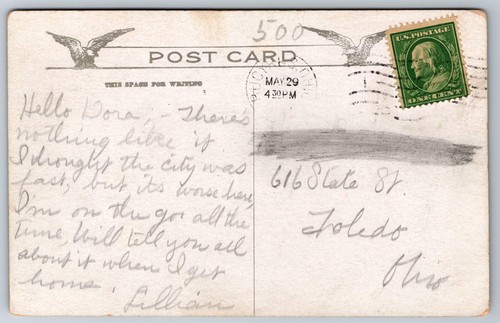 500
U.S. POSTAGE
ONE CENT
POST CARD
THIS SPACE FOR WRITING
MAY 29
4 30 PM
Hello Dora, - There's
nothing like it
I throught the city was
fast, but its worse here,
I'm on the go all the
time, Will tell you all
about it when I get
home.
Lillian
616 State St.
Toledo
Ohio